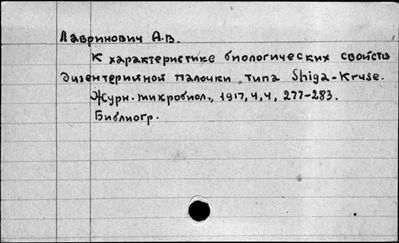 Лавринович А.В.
К характеристике биологических свойств
дизентерийной палочки типа Shiga-Kruse.
Журн. микробиол., 1917, 4, 4, 277-283.
Библиогр.